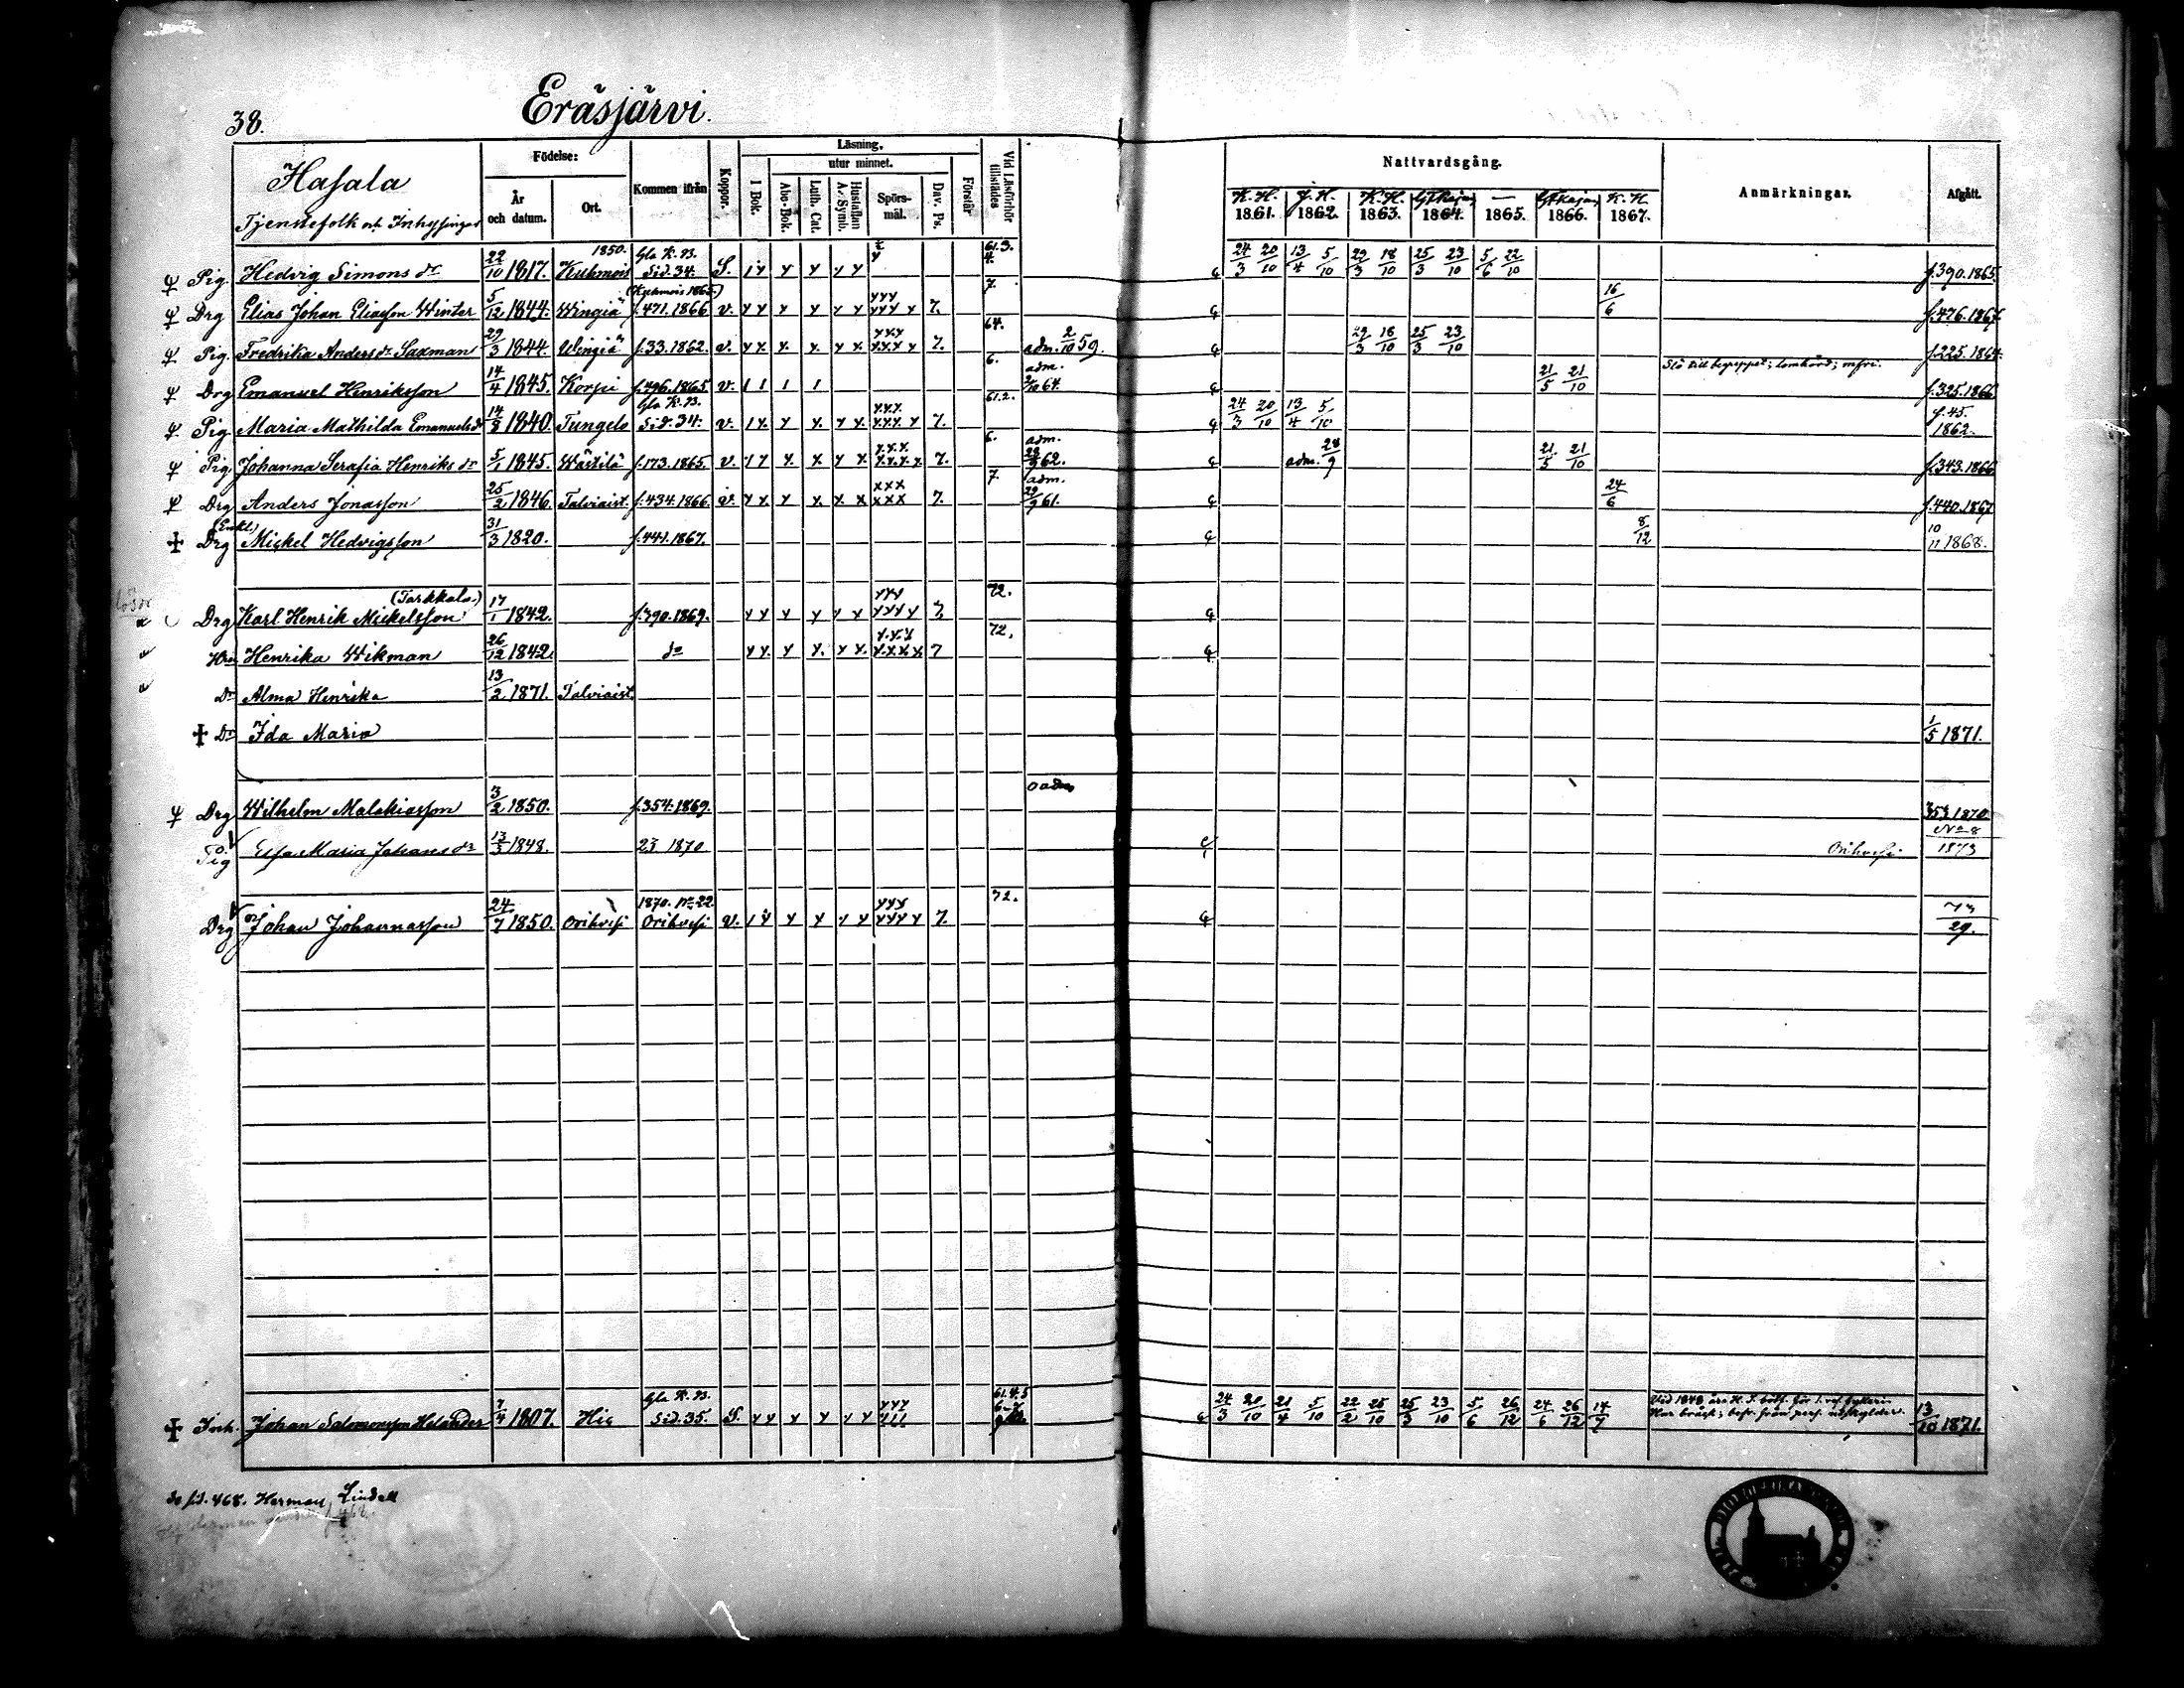 38. Eräsjärvi.
Hasala
Tjenstefolk och Inhysingar
Födelse: År och datum. Ort. Kommen ifrån Koppor. Läsning, I Bok. utur minnet. Abc-Bok. Luth. Cat. Hustaflan A. Symb. Spörsmål. Dav. Ps. Förstår Vid Läsförhör tillstädes
Nattvardsgång. Anmärkningar. Afgått.
K. H. 1861. 1862. K. H. 1863. 1864. — 1865. 1866. K. H. 1867.
Pig. Hedvig Simons dr 22/10 1817. 1850. Kuhmois Gla K. B. Sid. 34. S. 61.3. 4. 24/3 20/10 13/4 5/10 29/3 18/10 25/3 23/10 5/6 22/10 f.390.1865.
Drg Elias Johan Eliasson Winter 5/12 1844. Wingiä (Kuhmois 1865.) f.471.1866 v. 7. 7. 16/6 f.476.1867.
Pig. Fredrika Anders dr Saxman 29/3 1844. Wingiä f.33.1862. v. 7. 64. adm. 2/10 59. 29/3 18/10 25/3 23/10 f.225.1864.
Drg Emanuel Henriksson 14/4 1845. Korpi f.496.1865 v. 6. adm. 2/10 64. 21/5 21/10 f.325.1866
Pig. Maria Mathilda Emanuels dr 14/8 1840. Tungelo Gla K. B. Sid. 34. v. 7. 61.2. 24/3 20/10 13/4 5/10 f.45. 1862.
Pig. Johanna Serafia Henriks dr 5/1 1845. Wästilä f.173.1865. v. 7. 6. adm. 28/9 62. adm. 28/9 21/5 21/10 f.343.1866
Drg Anders Jonasson 25/2 1846. Talviaist. f.434.1866. v. 7. 7. adm. 29/9 61. 24/6 f.440.1867
(Enkl.) Drg Mickel Hedvigsson 31/3 1820. f.441.1867. 8/12 10/11 1868.
(Tarkkala.)
Drg Karl Henrik Mickelsson 17/1 1842. f.390.1869. 7. 72.
Hru Henrika Wikman 26/12 1842. do 7 72.
Dr Alma Henrika 13/2 1871. Talviaist.
Dr Ida Maria 1/5 1871.
Drg Wilhelm Malakiasson 3/2 1850. f.354.1869. oadm 353 1870
Pig Maria Johans dr 13/3 1848. 23 1870 Orihvesi No 8 1873
Drg Johan Johannasson 24/7 1850. Orihvesi 1870. No 22. Orihvesi v. 7. 72. 73/29.
Inh. Johan Salomonsson Helander 7/4 1807. Hie Gla K. B. Sid. 35. S. 24/3 20/10 21/4 5/10 22/2 25/10 25/3 23/10 5/6 26/12 24/6 26/12 14/7 13/10 1871.
Se sid. 468. Herman Lindell